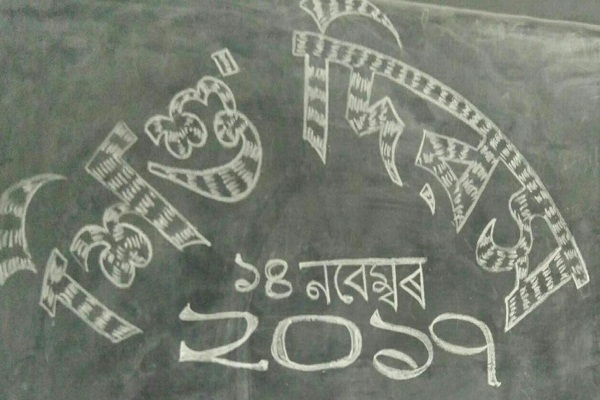 শিশু দিৱস
১৪ নবেম্বৰ
২০১৭